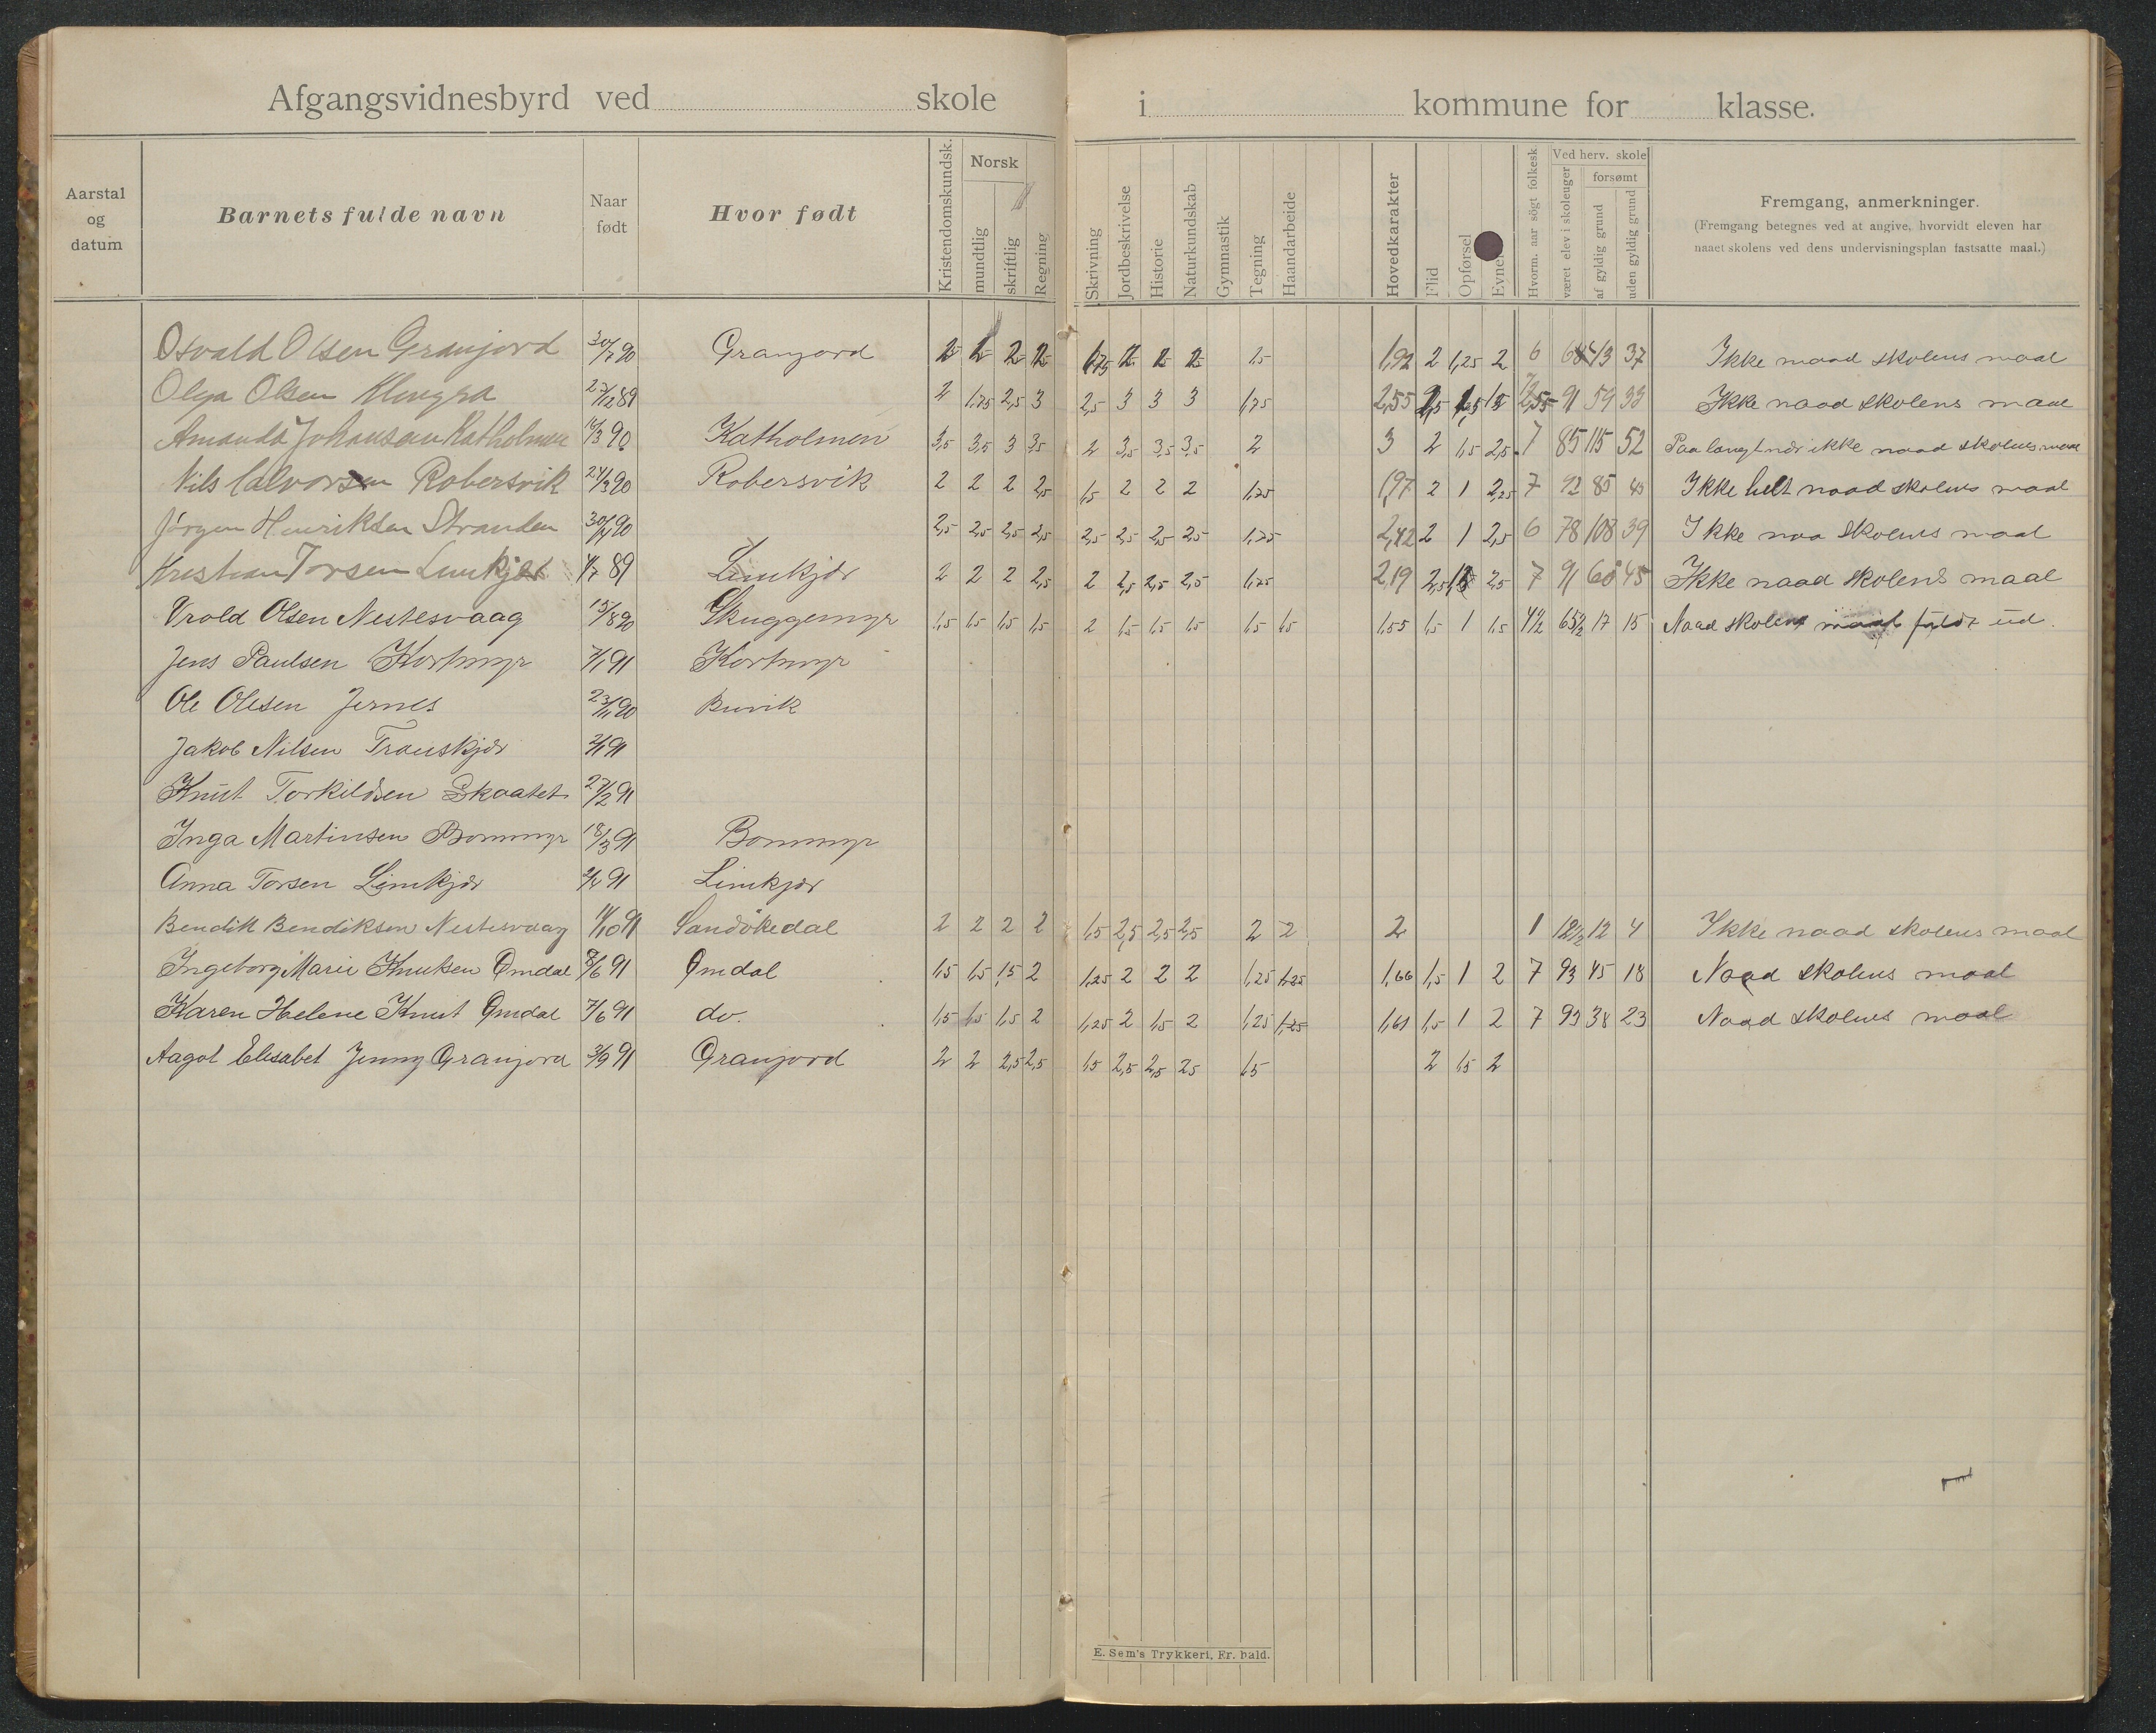 Afgangsvidnesbyrd ved skole i kommune for klasse.
Aarstal og datum
Barnets fulde navn
Naar født
Hvor født
Kristendomskundsk.
Norsk
mundtlig
skriftlig
Regning
Skrivning
Jordbeskrivelse
Historie
Naturkundskab
Gymnastik
Tegning
Haandarbeide
Hovedkarakter
Flid
Opførsel
Evne
Hvorm. aar søgt folkesk
Ved herv. skole
været elev i skoleuger
forsømt
af gyldig grund
uden gyldig grund
Fremgang, anmerkninger.
(Fremgang betegnes ved at angive, hvorvidt eleven har
naaet skolens ved dens undervisningsplan fastsatte maal.)
Osvald Olsen Granjord 30/7 90 Granjord 2 2 2 2 1,75 2 2 2 1,5 1,92 2 1,25 2 6 413 37 Ikke naad skolens maal
Olga Olsen 27/12 89 2 1,75 2,5 3 2,5 3 3 3 1,75 2,55 91 59 33 Ikke naad skolens maal
Amanda Johansen Katholmen 16/3 90 Katholmen 3,5 3,5 3 3,5 2 3,5 3,5 3,5 2 3 2 1,5 2,5 7 85 115 52 Paa langt nær ikke naad skolens maal
Nils Calvorsen Robersvik 24/3 90 Robersvik 2 2 2 2,5 1,5 2 2 2 1,75 1,97 2 1 2,25 7 92 85 45 Ikke helt naad skolens maal
Jörgen Henriksen Stranden 30/4 90 2,5 2,5 2,5 2,5 2,5 2,5 2,5 2,5 1,75 2,42 2 1 2,5 6 78 108 39 Ikke naa skolens maal
Kristian Torsen Limkjær 4/7 89 Limkjær 2 2 2 2,5 2 2,5 2,5 2,5 1,75 2,19 2,5 1,5 2,5 7 91 60 45 Ikke naad skolens maal
Vrold Olsen Nestesvaag 15/8 90 Skuggemyr 1,5 1,5 1,5 1,5 2 1,5 1,5 1,5 1,5 1,5 1,55 1,5 1 1,5 4 1/2 65 1/2 17 15 Naad skolens maal fuldt ud.
Jens Paulsen Kortmyr 7/1 91 Kortmyr
Ole Olesen Jernes 23/11 90 Buvik
Jakob Nilsen Transkjær 2/1 91
Knut Torkildsen Skaatet 27/2 91
Inga Martinsen Bommyr 18/3 91 Bommyr
Anna Torsen Limkjær 2/4 91 Limkjær
Bendik Bendiksen Nestesvaag 14/10 91 Sandökedal 2 2 2 2 1,5 2,5 2,5 2,5 2 2 2 1 12 1/2 12 4 Ikke naad skolens maal
Ingeborg Marie Knutsen Omdal 8/6 91 Omdal 1,5 1,5 1,5 2 1,25 2 2 2 1,25 1,25 1,66 1,5 1 2 7 93 45 18 Naad skolens maal
Karen Helene Knut Omdal 7/6 91 do. 1,5 1,5 1,5 2 1,25 2 1,5 2 1,25 1,25 1,61 1,5 1 2 7 93 38 23 Naad skolens maal
Aagot Elisabet Jenny Granjord 3/9 91 Granjord 2 2 2,5 2,5 1,5 2,5 2,5 2,5 1,5 2 1,5 2
E. Sem's Trykkeri, Fr. hald.